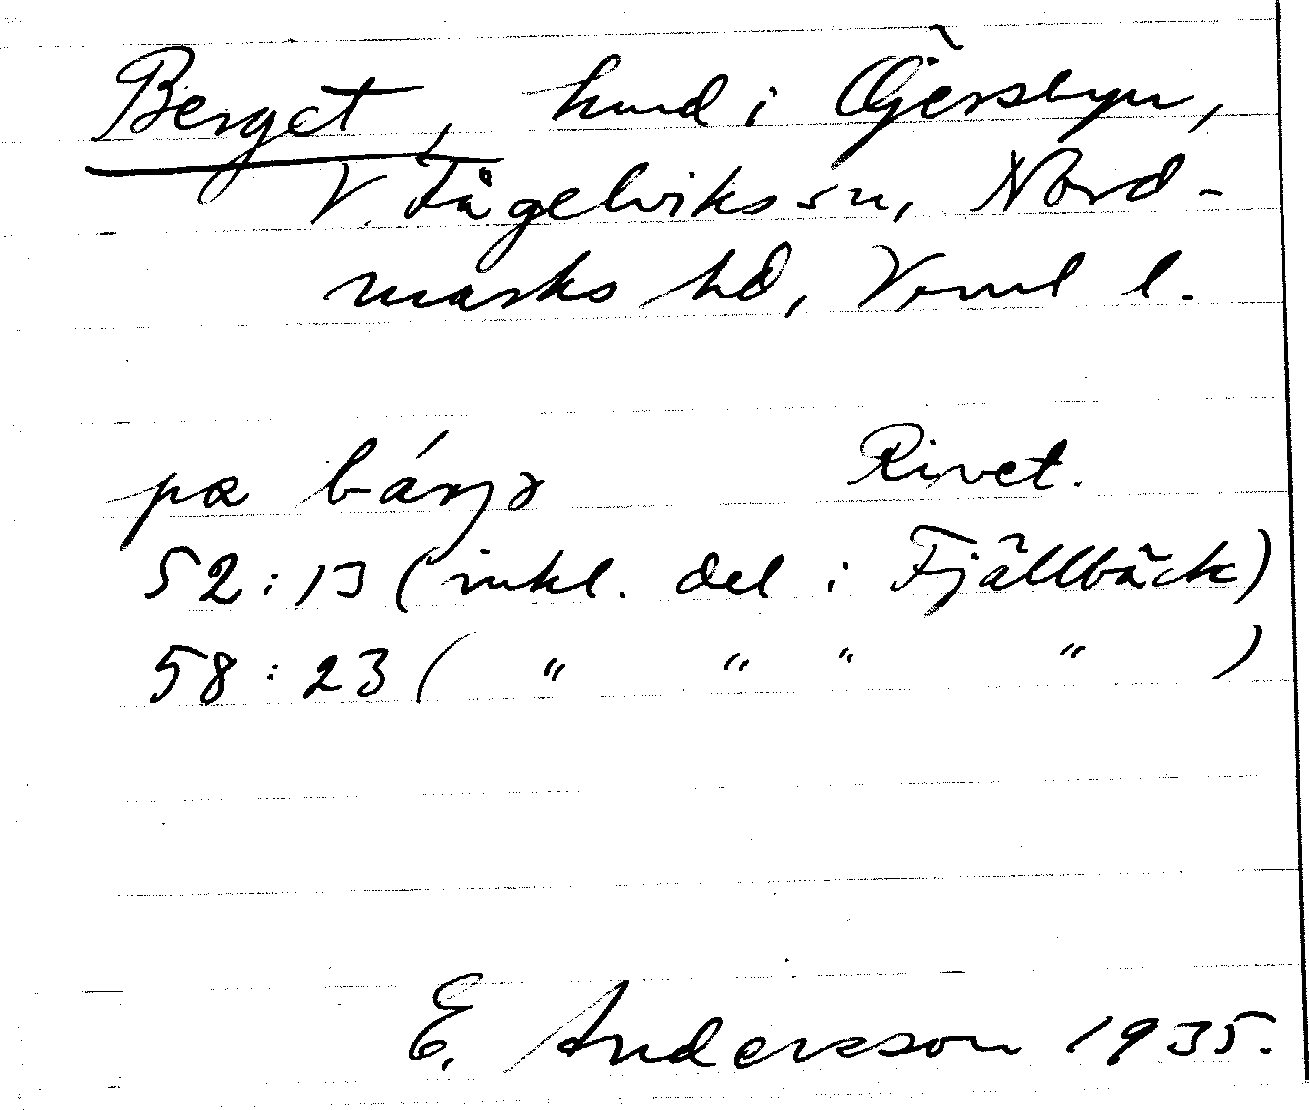 Berget, hmd i Öjersbyn,
V. Fågelviks sn, Nord-
marks hd, Verml l.
pa bárjə Rivet.
52:13 (inkl. del i Fjällbäck)
58:23 ( " " " " )
E. Andersson 1935.